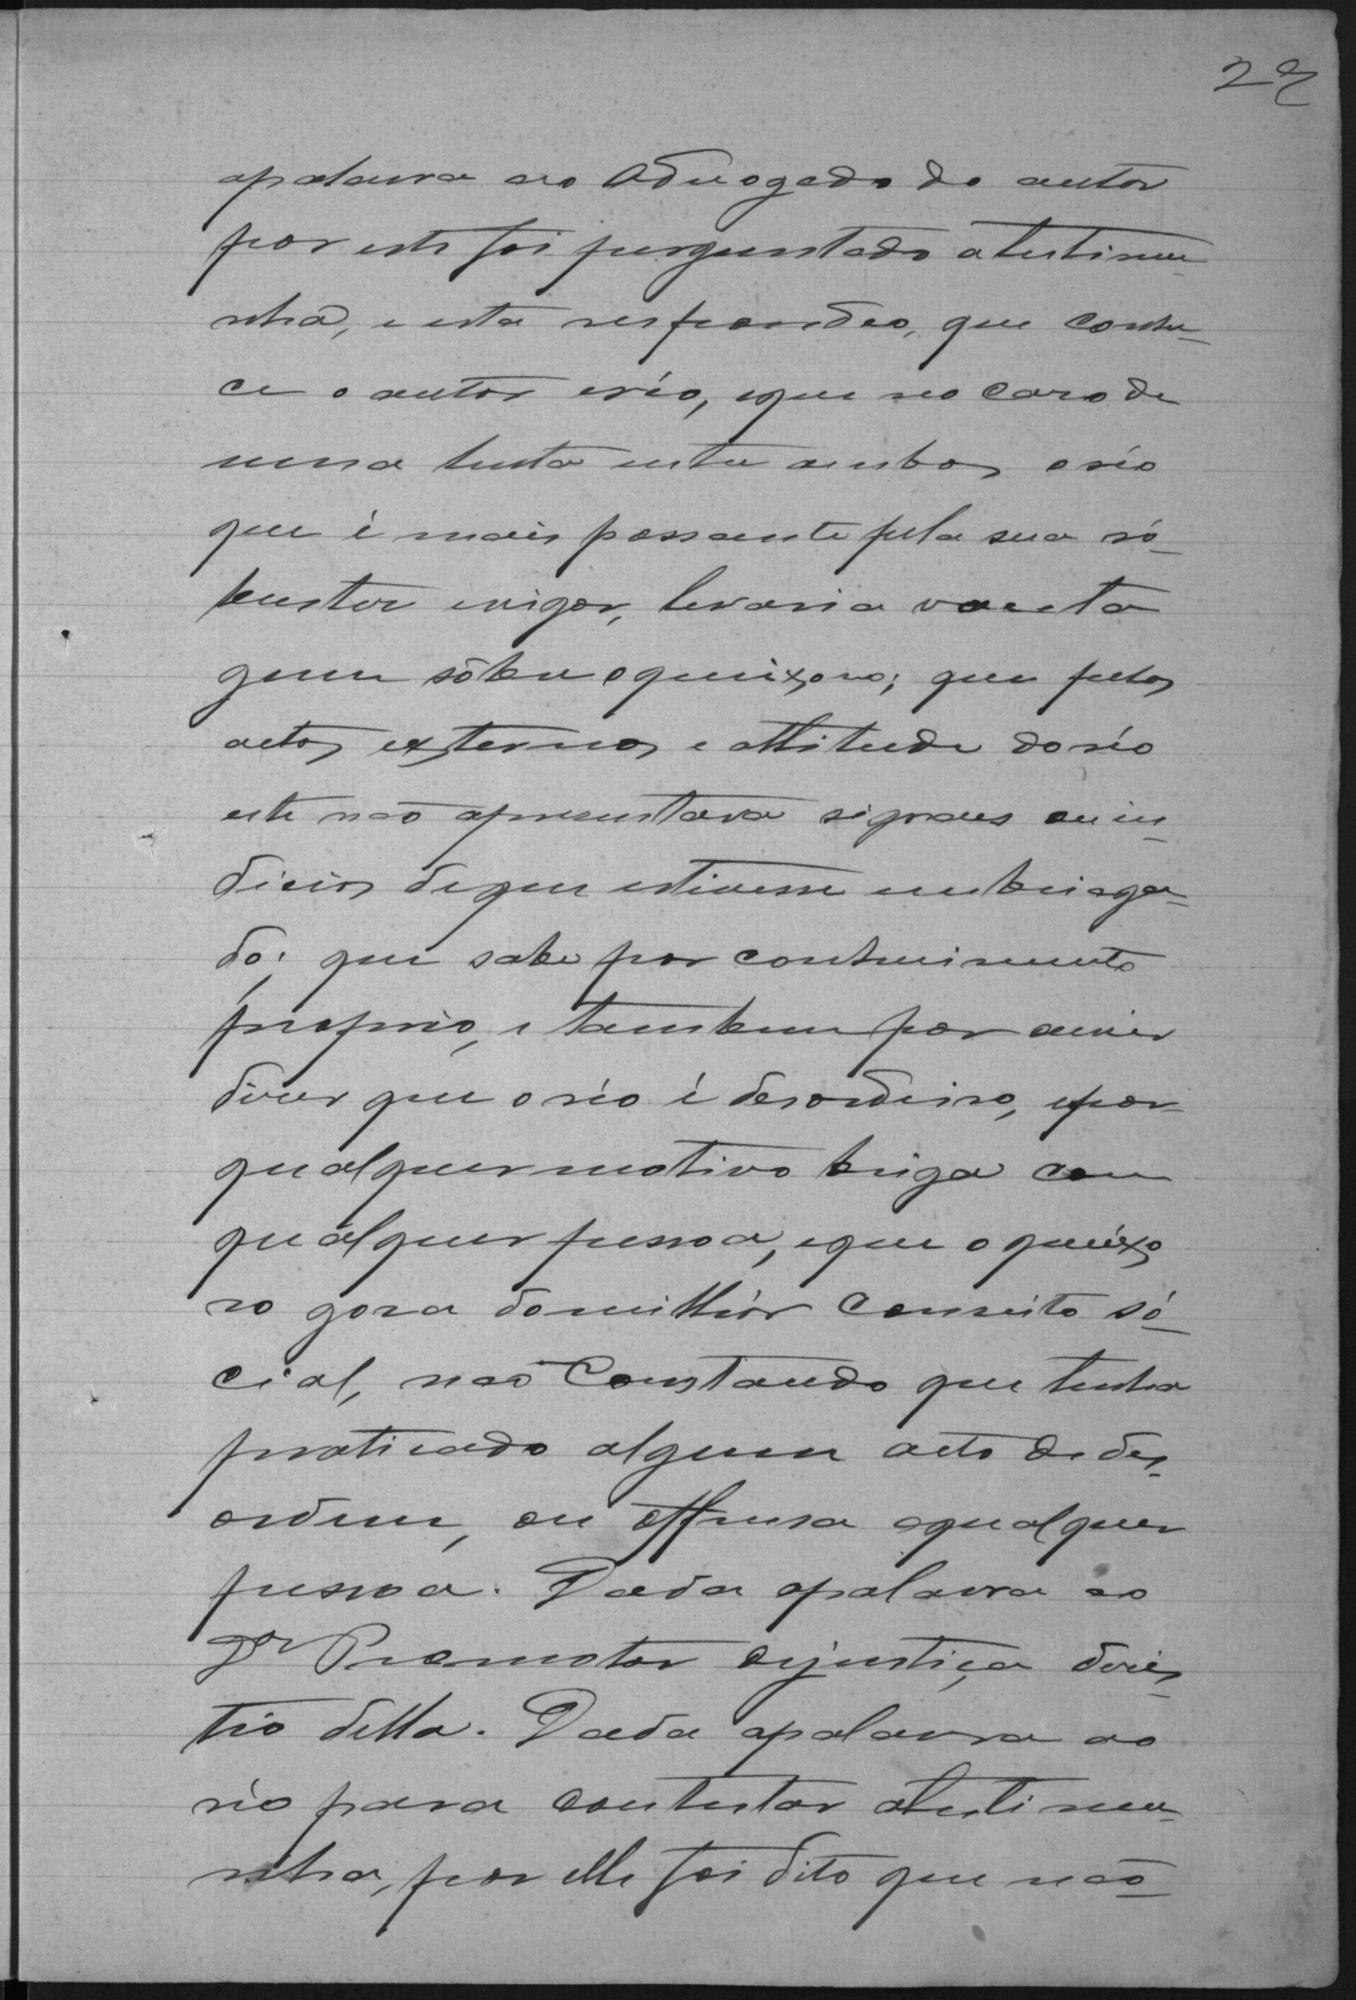 22
apalavra ao Advogado do autor
por este foi perguntado a testimu-
nha, e esta respondeo, que conhe-
ce o autor e réo, e que no caso de
uma lucta entre ambos o réo
que é mais possante pela sua ró-
bustez e vigor, levaria vanta
gem sôbre o queixoso; que pelos
actos externos e attitude do réo
este não apresentava signaes ou in-
dicios de que estivesse embriaga-
do; que sabe por conhecimento
proprio, e tambem por ouvir
dizer que o réo é desordeiro, e por
qualquer motivo briga com
qualquer pessoa, e que o queixo
so gosa do milhór conceito só-
cial, não Constando que tenha
praticado algum acto de des-
ordem, ou offensa a qualquer
pessoa. Dada apalavra ao
Dr Promotor dejustiça desis-
tio della. Dada apalavra ao
réo para contestar a testimu-
nha, por elle foi dito que não